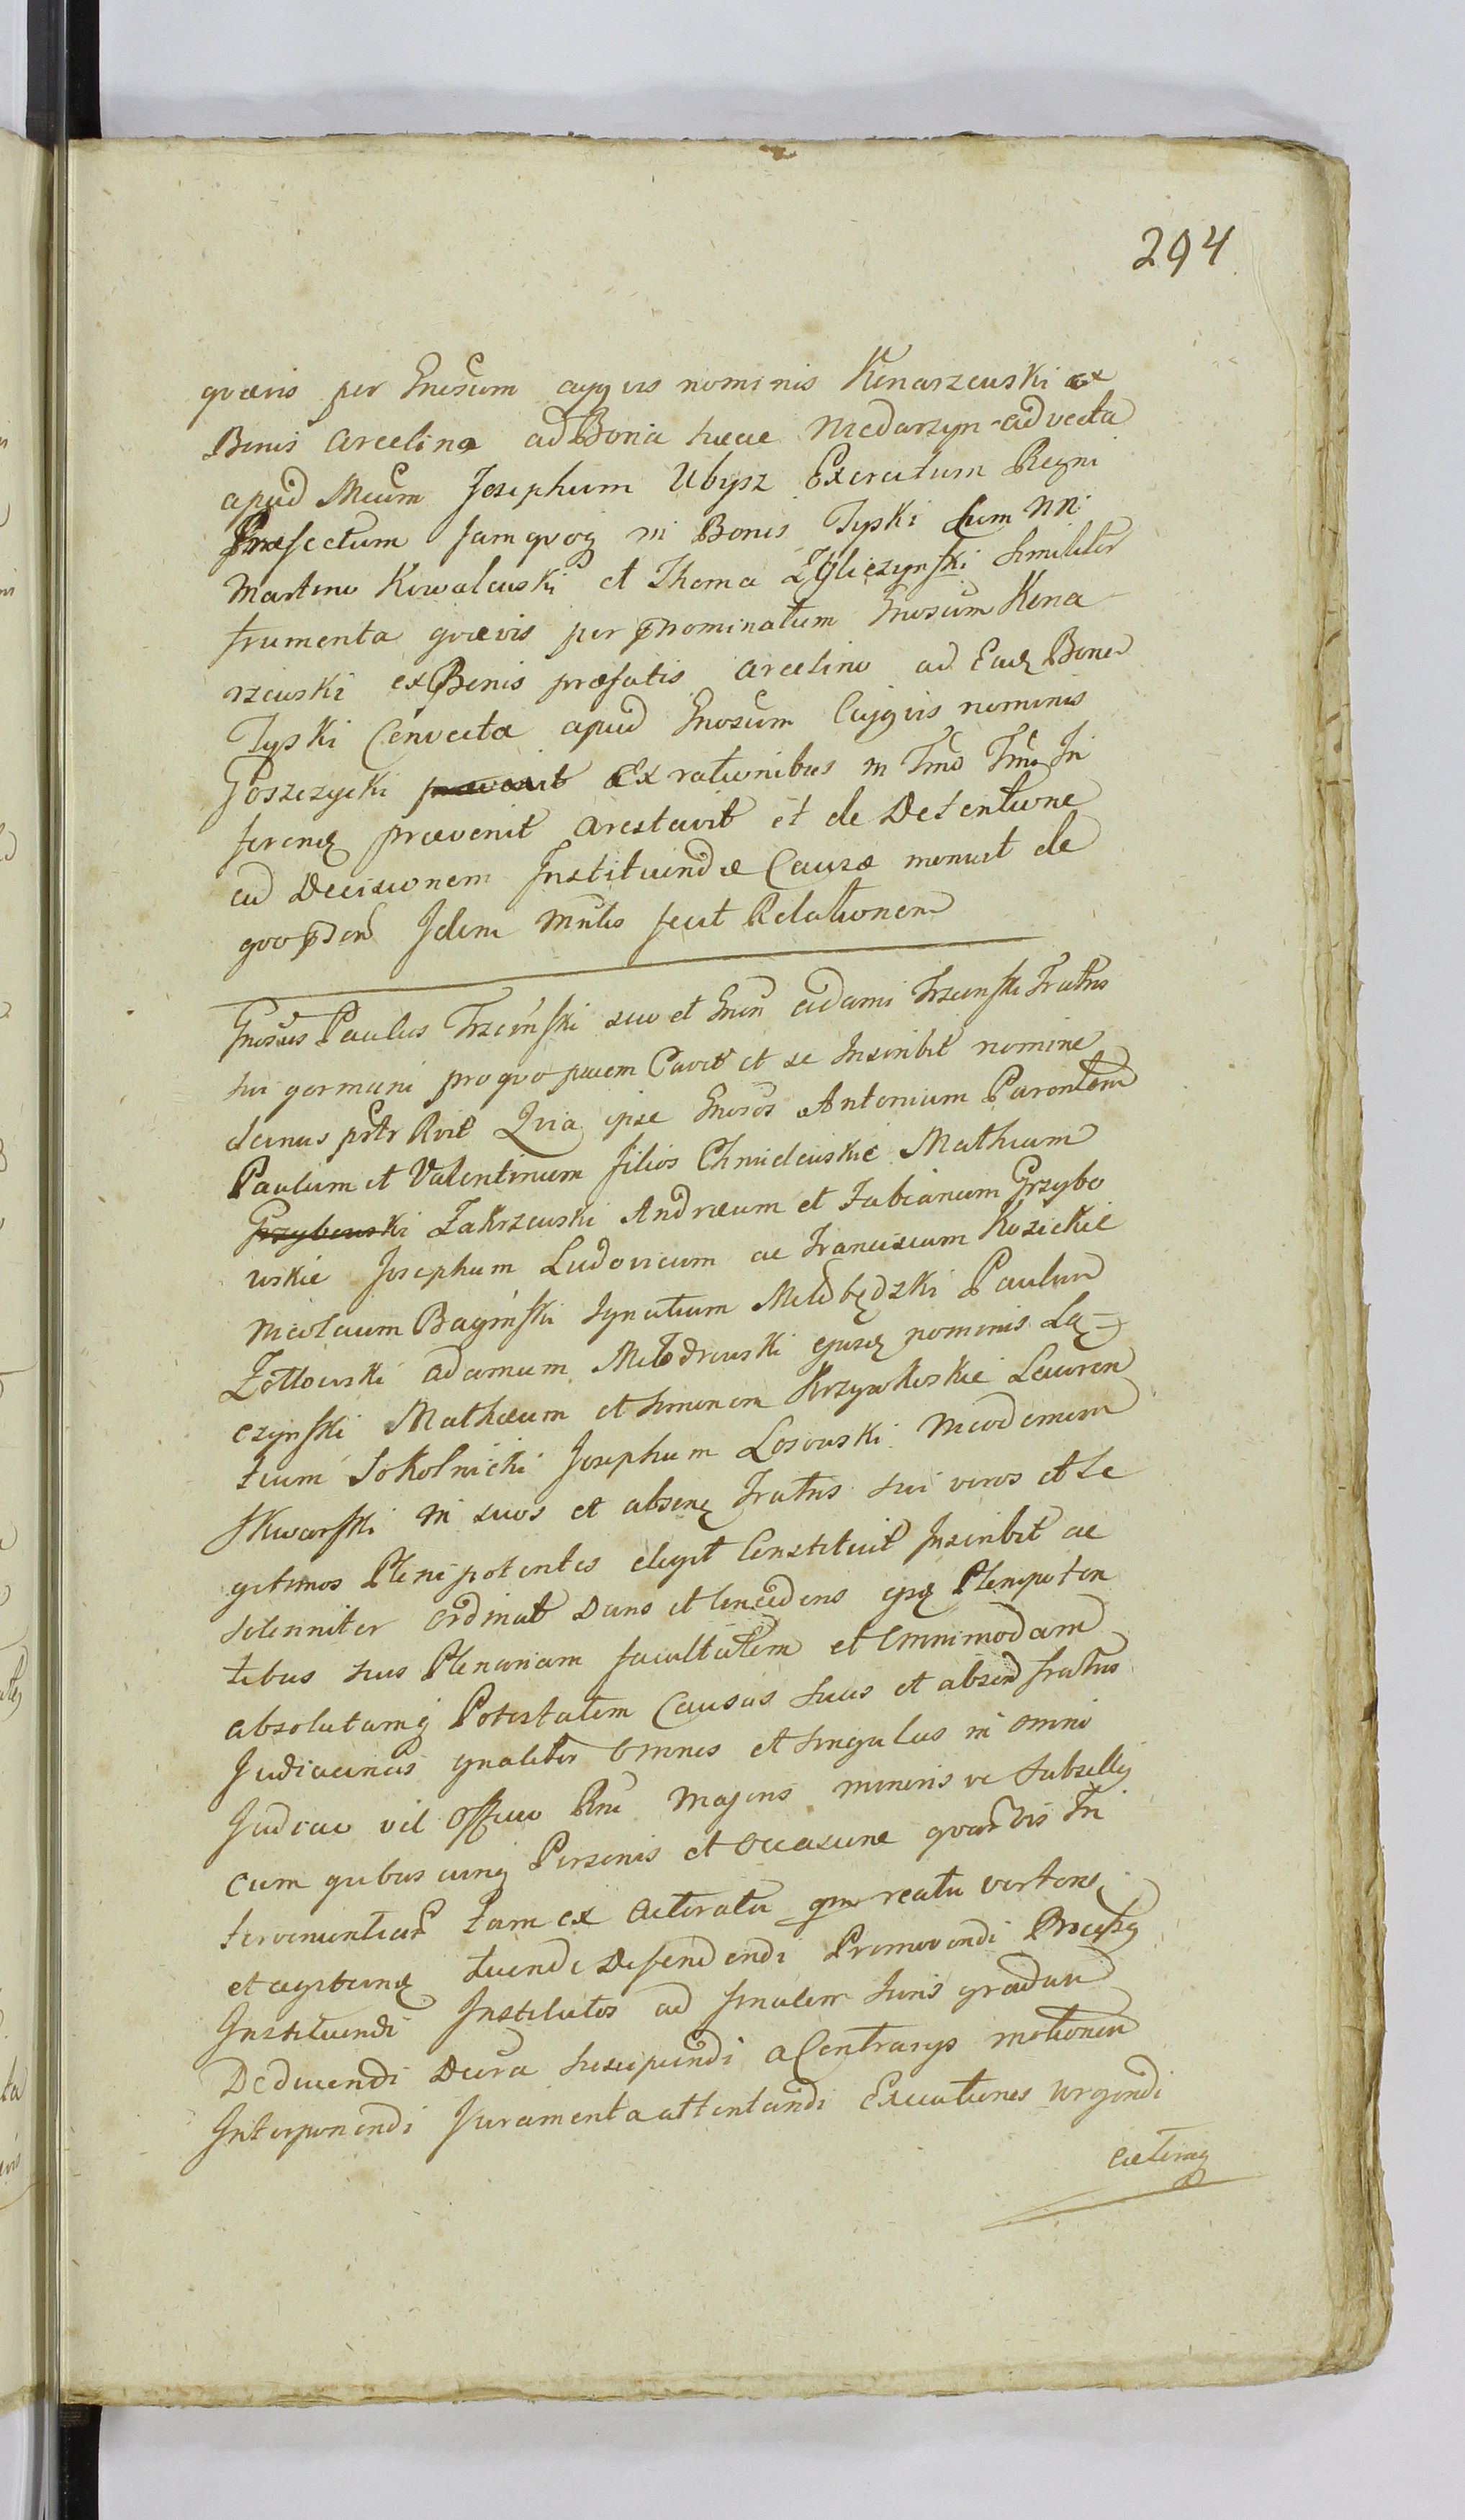 294
qvævis per Gnosum cujqvis nominis Konarzewski ex
Bonis Arcelino ad Bona hæc Niedarzyn advecta
apud Mcum Josephum Ubysz Exercitum Regni
Præfectum jamqvoq in Bonis Tyski cum NN
Martino Kowalewski et Thoma Zgliczynski similiter
frumenta qvævis per pnominatum Gnosum Kona
rzewski ex Bonis præfatis Arcelino ad Eadę Bona
Tyski Convecta apud Gnosum Cujqvis nominis
Goszczycki prævenit Ex rationibus in Tmo Tmo In
ferenę prævenit arestavit et de Detentione
ad Decisionem Instituendæ Causæ monuit de
qvo pden Idem Mnlis fecit Relationem
Gnosus Paulus Trzcinski suo et Gnon Adami Trzcinski Fratris
sui germani pro qvo pacem Cavet et se Inscribit nomine
deinus prtr Rvit Qvia ipse Gnosos Antonium Parentem
Paulum et Valentinum filios Chmielewskie Mathiam
Grzybowski Zakrzewski Andræum et Fabianum Grzybo
wskie Josephum Ludovicum ac Franciscum Kozickie
Nicolaum Baginski Ignatium Milobędzki Paulum
Zołtowski Adamum Młodzewski ejusdę nominis Łą-
czynski Mathæum et Simonem Krzywkoskie Lauren
tium Sokolnicki Josephum Losowski Nicodemum
Skwarski in suos et absenę Fratris sui veros et Le
gitimos Plenipotentes elegit Constituit Inscribit ac
solenniter ordinat Dans et Concedens ejsdę Plenipoten
tibus suis Plenariam facultatem et Omnimodam
absolutamq Potestatem Causas suas et absen fratris
Judiciarias gnaliter Omnes et singulas in omni
Judicio vel Officio Rni Majoris minoris ve Subsellij
cum qvibuscunq Personis et occasione qvarvis In
tervenientium Tam ex Actoratu qm reatu vertenę
et agitanę tuendi Defendendi Promovendi Processq
Instituendi Institutos ad finalem Juris gradum
Deducendi Decra suscipiendi a Contrarijs motionem
Interponendi Juramenta attentandi Executiones urgendi
cæteraq